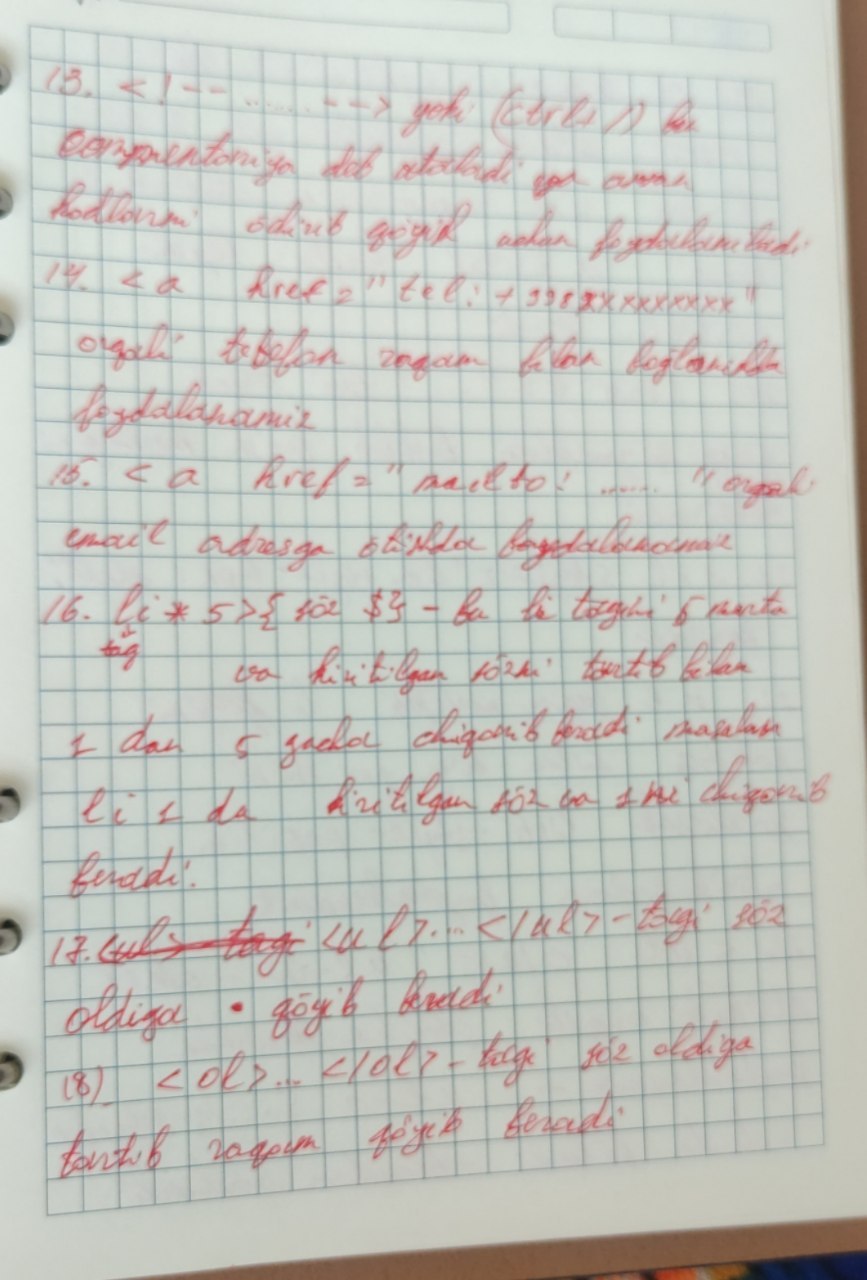 13. <!-- ....... --> yoki (Ctrl+/) bu
deb ataladi
kodlarni öchirib qöyish uchun foydalaniladi.
14. <a href="tel: +998xxxxxxxxx"
orqali telefon raqam bilan
foydalanamiz
15. <a href="mailto: ...... " orqali
email adresga ötishda foydalanamiz
16. li * 5>{ söz $} - bu li tagini 5 marta
tag
va kiritilgan sözni tartib bilan
1 dan 5 gacha chiqarib beradi masalan
li 1 da kiritilgan söz va 1 ni chiqarib
beradi.
17. <ul> tagi <ul>... </ul> - tagi söz
oldiga • qöyib beradi
18) <ol>... </ol> - tagi söz oldiga
tartib raqam qöyib beradi